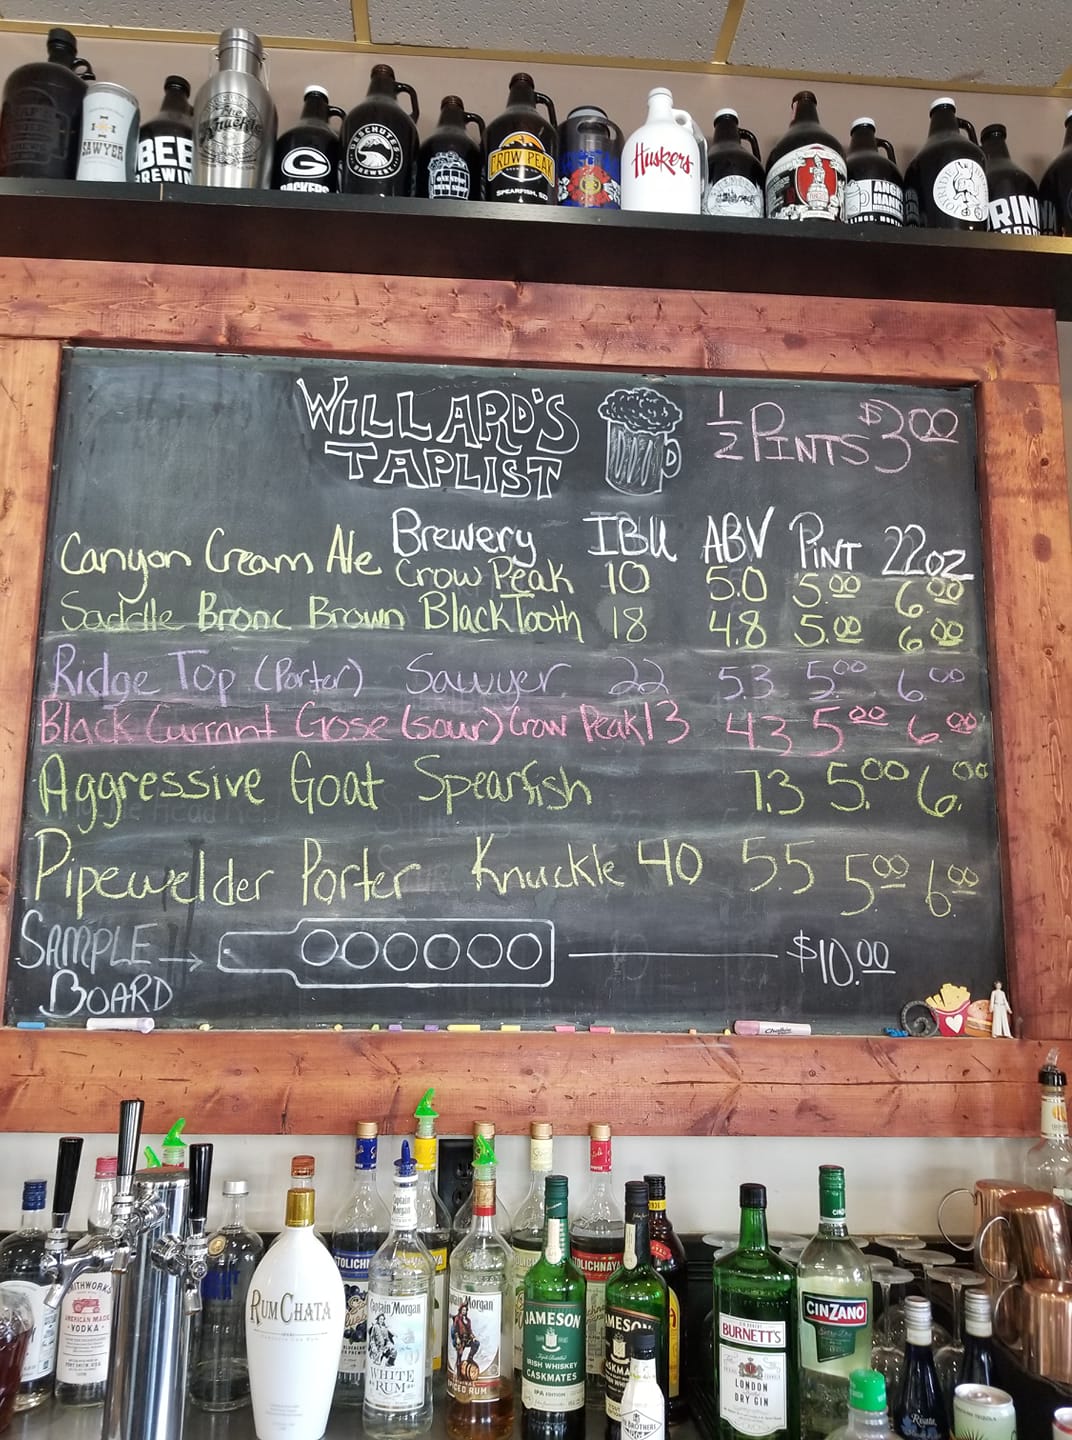 SAWYER
BEER
BREWIN
The
Knuckle
G
PACKERS
DESCHUTES
BREWERY
CROW PEAK
SPEARFISH, SD
Huskers
WILLARD'S
TAPLIST
1/2 PINTS $3.00
Brewery IBU ABV PINT 22oz
Canyon Cream Ale Crow Peak 10 5.0 5.00 6.00
Saddle Bronc Brown BlackTooth 18 4.8 5.00 6.00
Ridge Top (Porter) Sawyer 22 5.3 5.00 6.00
Black Currant Gose (sour) Crow Peak 13 4.3 5.00 6.00
Aggressive Goat Spearfish 7.3 5.00 6.00
Pipewelder Porter Knuckle 40 5.5 5.00 6.00
SAMPLE → $10.00
BOARD
SMITHWORKS
AMERICAN MADE
VODKA
RUMCHATA
STOLICHNAYA
Captain Morgan
WHITE
RUM
Captain Morgan
SPICED RUM
JAMESON
IRISH WHISKEY
CASKMATES
IPA EDITION
JAMESON
BURNETT'S
LONDON
DRY GIN
CINZANO